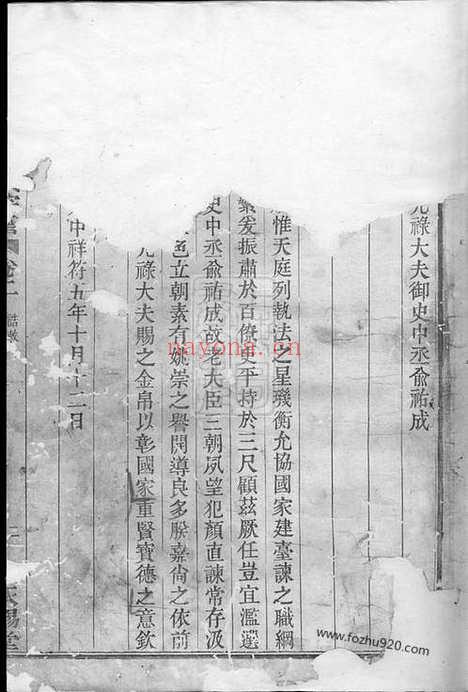 光祿大夫御史中丞俞祐成
惟天庭列執法之星璣衡允協國家建臺諫之職綱
爰振肅於百僚平持於三尺顧茲厥任豈宜濫選
史中丞俞祐成故老大臣三朝夙望犯顏直諫常存汲
色立朝素有姚崇之譽開導良多朕嘉尚之依前
光祿大夫賜之金帛以彰國家重賢寶德之意欽
中祥符五年十月十二日
譜 卷二 誥敕
賜堂
nayona.cn
www.fozhu920.com